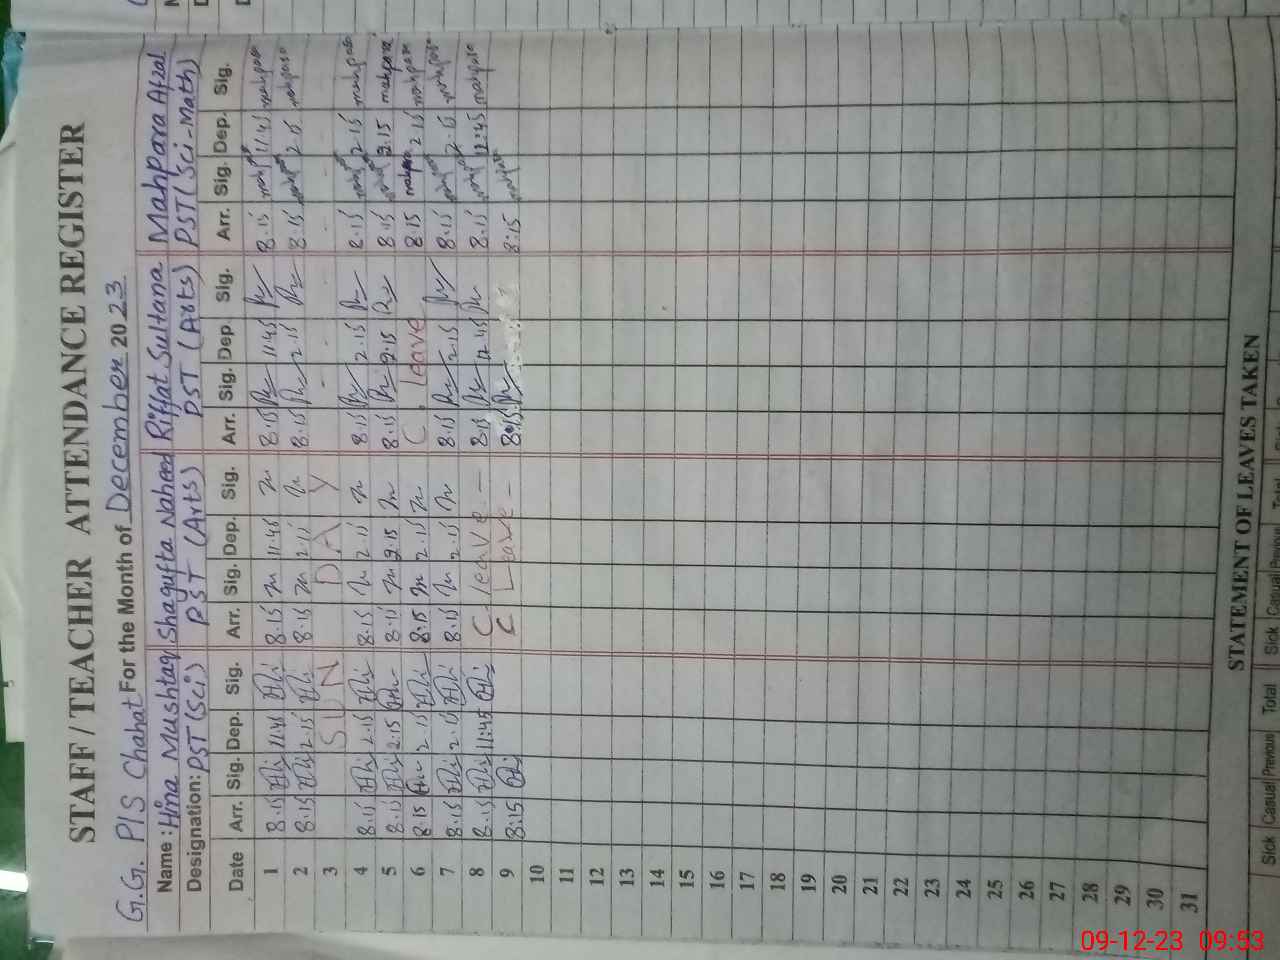 STAFF / TEACHER ATTENDANCE REGISTER
G.G. P/S Chahat For the Month of December 2023
Name : Hina Mushtaq Shagufta Naheed Riffat Sultana Mahpara Afzal
Designation: PST (Sci) PST (Arts) PST (Arts) PST (Sci-Math)
Date Arr. Sig. Dep. Sig. Arr. Sig. Dep. Sig. Arr. Sig. Dep Sig. Arr. Sig. Dep. Sig.
1 8:15 11:45 8:15 11:45 8:15 11:45 8:15 mahpara 11:45 mahpara
2 8:15 2:15 8:15 2:15 8:15 2:15 8:15 mahpara 2:15 mahpara
3 S U N D A Y
4 8:15 2:15 8:15 2:15 8:15 2:15 8:15 mahpara 2:15 mahpara
5 8:15 2:15 8:15 2:15 8:15 2:15 8:15 mahpara 2:15 mahpara
6 8:15 2:15 8:15 2:15 C. leave 8:15 mahpara 2:15 mahpara
7 8:15 2:15 8:15 2:15 8:15 2:15 8:15 mahpara 2:15 mahpara
8 8:15 11:45 C leave - 8:15 12:45 8:15 mahpara 12:45 mahpara
9 8:15 C Leave - 8:15 8:15 mahpara
10
11
12
13
14
15
16
17
18
19
20
21
22
23
24
25
26
27
28
29
30
31
STATEMENT OF LEAVES TAKEN
Sick Casual Previous Total Sick Casual Previous Total
09-12-23 09:53